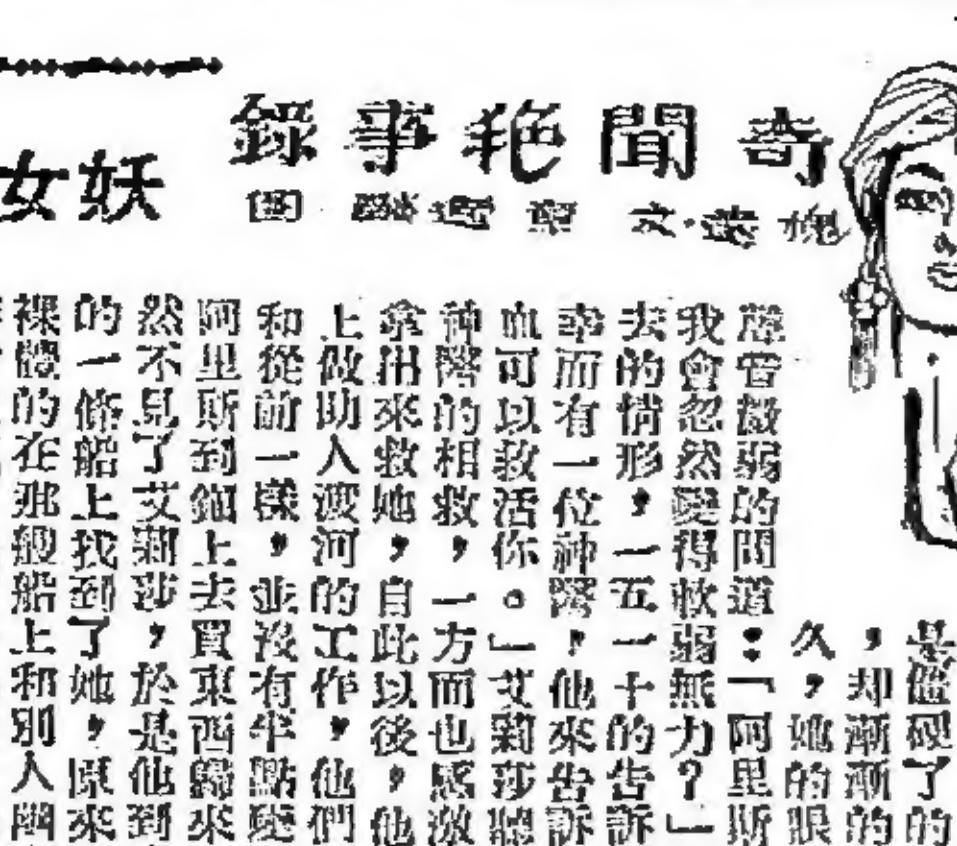 奇聞艳事錄
妖女
是僵硬了的
，却漸漸的
久，她的眼
聲音微弱的問道：「阿里斯
我會忽然變得軟弱無力？」
去的情形，一五一十的告訴
幸而有一位神醫，他來告訴
血可以救活你。」艾莉莎聽
神醫的相救，一方面也感激
拿出來救她，自此以後，他
上做助人渡河的工作，他們
和從前一樣，並沒有半點變
阿里斯到鎮上去買東西歸來
然不見了艾莉莎，於是他到
的一條船上找到了她，原來
裸體的在那艘船上和別人幽